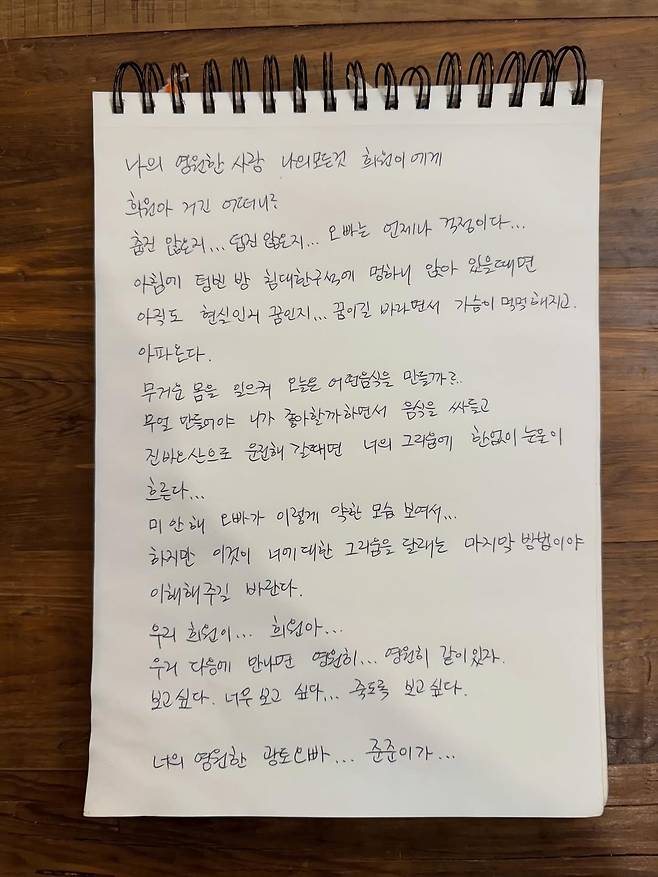 나의 영원한 사랑 나의모든것 희원이에게
희원아 거긴 어떠니?
춥진 않은지... 덥진 않은지... 오빠는 언제나 걱정이다...
아침에 텅빈 방 침대한구석에 멍하니 앉아 있을때면
아직도 현실인지 꿈인지... 꿈이길 바라면서 가슴이 먹먹해지고.
아파온다.
무거운 몸을 일으켜 오늘은 어떤음식을 만들까..
무얼 만들어야 니가 좋아할까하면서 음식을 싸들고
진바오산으로 운전해 갈때면 너의 그리움에 한없이 눈물이
흐른다...
미안해 오빠가 이렇게 약한 모습 보여서...
하지만 이것이 너에대한 그리움을 달래는 마지막 방법이야
이해해주길 바란다.
우리 희원이... 희원아...
우리 다음에 만나면 영원히... 영원히 같이있자.
보고싶다. 너무 보고 싶다... 죽도록 보고싶다.
너의 영원한 광토오빠... 준준이가...